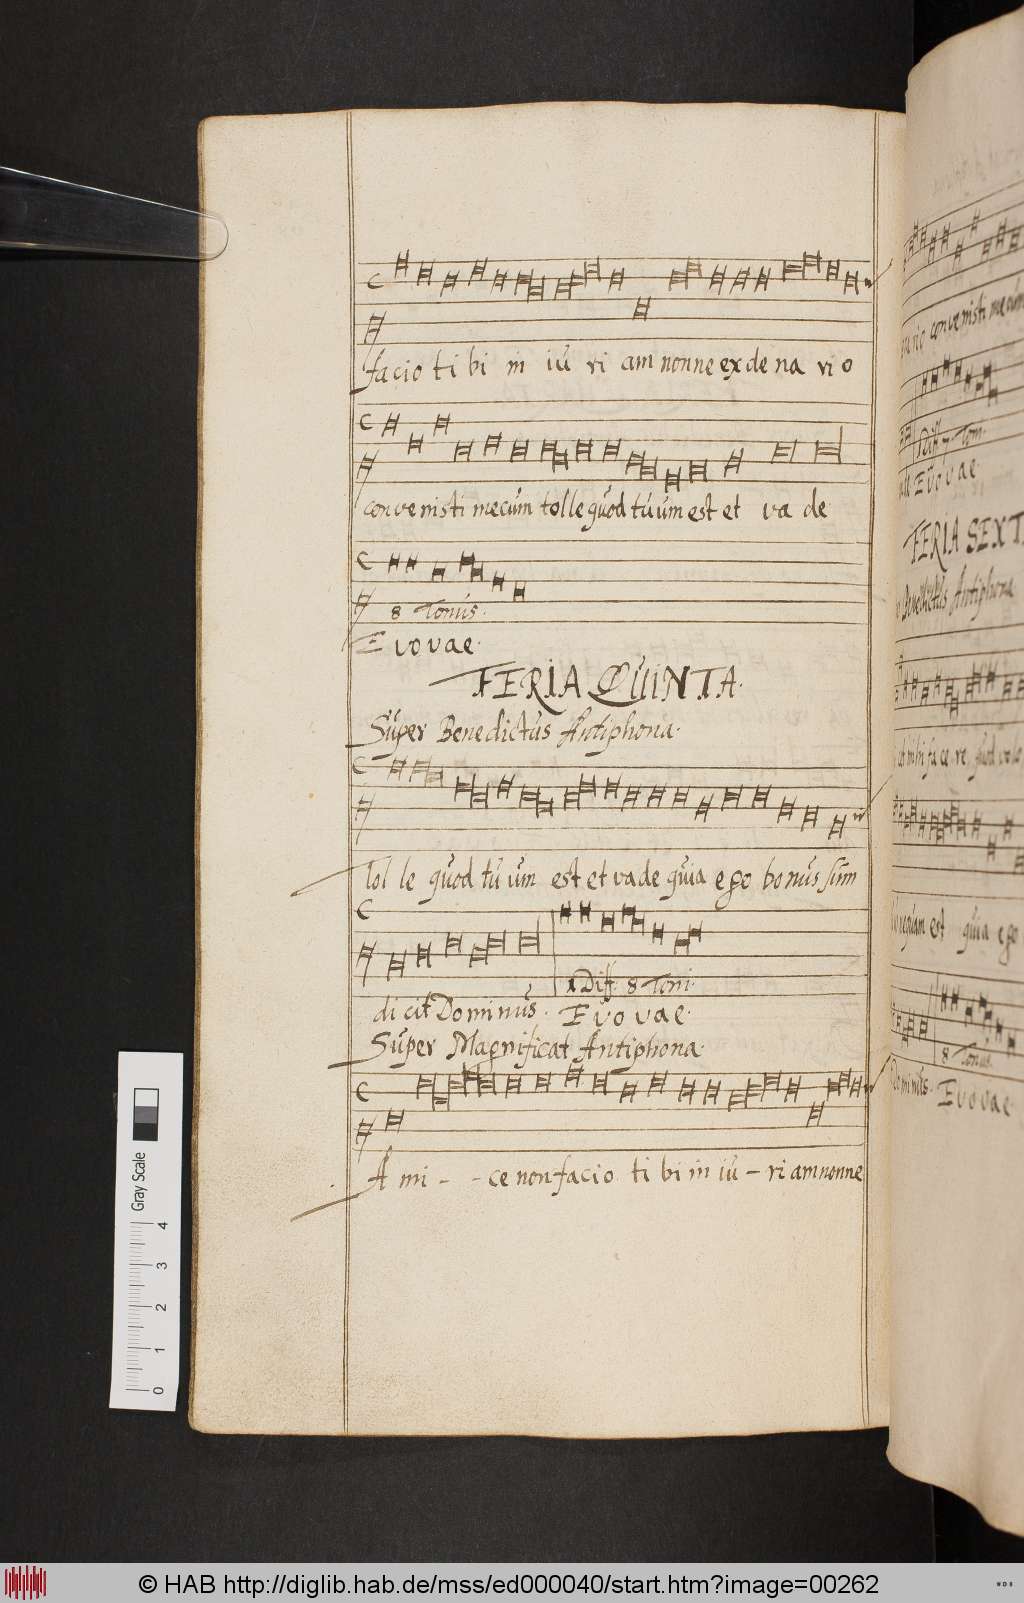 facio ti bi in iu ri am nonne ex de na ri o
convenisti mecum tolle quod tuum est et va de
8 Tonus.
E vovae.
FERIA QUINTA.
Super Benedictus Antiphona.
Tol le quod tu um est et vade quia ego bonus sum
1 Diff. 8 Toni.
di cit Dominus. E vo vae.
Super Magnificat Antiphona.
A mi - - ce non facio ti bi in iu - ri am nonne
convenisti
Diff 7 Toni.
Evovae
FERIA SEXT
Benedictus Antiphona
fa ce re quod volo
est quia ego
8 Tonus.
Dominus. E vovae
Gray Scale
0 1 2 3 4
© HAB http://diglib.hab.de/mss/ed000040/start.htm?image=00262